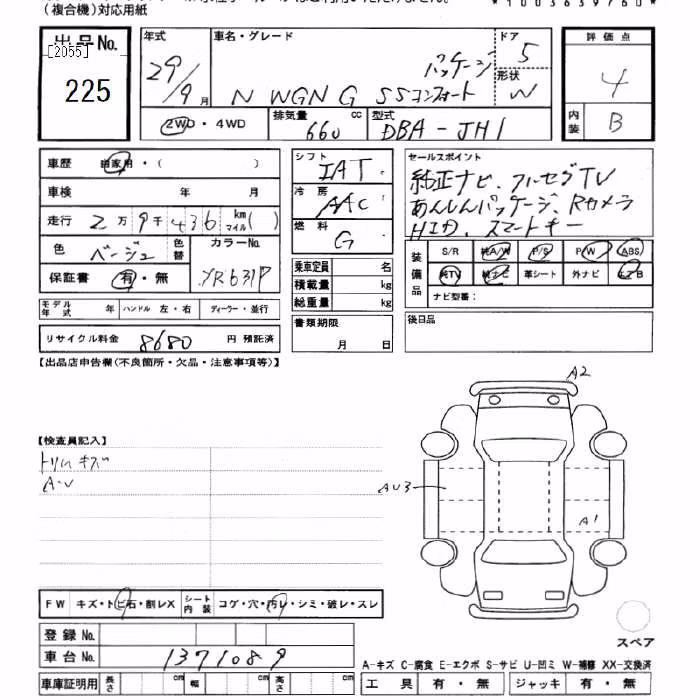 （複合機）対応用紙
*1003639760*
出品No.
[2055]
225
年式
29/9月
車名・グレード
パッケージ
N WGN G SSコンフォート
ドア
5
形状
W
評価点
4
内装
B
2WD・4WD
排気量
660cc
型式
DBA-JH1
車歴 自家用・（ ）
車検 年 月
走行 2万9千436 km マイル( )
色 ベージュ 色替
カラーNo.
YR631P
保証書 有・無
モデル年式 年 ハンドル 左・右 ディーラー・並行
リサイクル料金 8680 円 預託済
シフト
IAT
冷房
AAC
燃料
G
乗車定員 名
積載量 kg
総重量 kg
書類期限
月 日
セールスポイント
純正ナビ、フルセグTV
あんしんパッケージ、Rカメラ
HID、スマートキー
装備品
S/R 純A/W P/S P/W ABS
純TV 純ナビ 革シート 外ナビ エアB
ナビ型番：
後日品
【出品店申告欄(不良箇所・欠品・注意事項等)】
【検査員記入】
トリムキズ
A・U
A2
AU3
A1
FW キズ・トビ石・割レX シート内装 コゲ・穴・汚レ・シミ・破レ・スレ
登録No.
車台No. 1371089
車庫証明用 長さ cm 幅 cm 高さ cm
スペア
A-キズ C-腐食 E-エクボ S-サビ U-凹ミ W-補修 XX-交換済
工具 有・無 ジャッキ 有・無